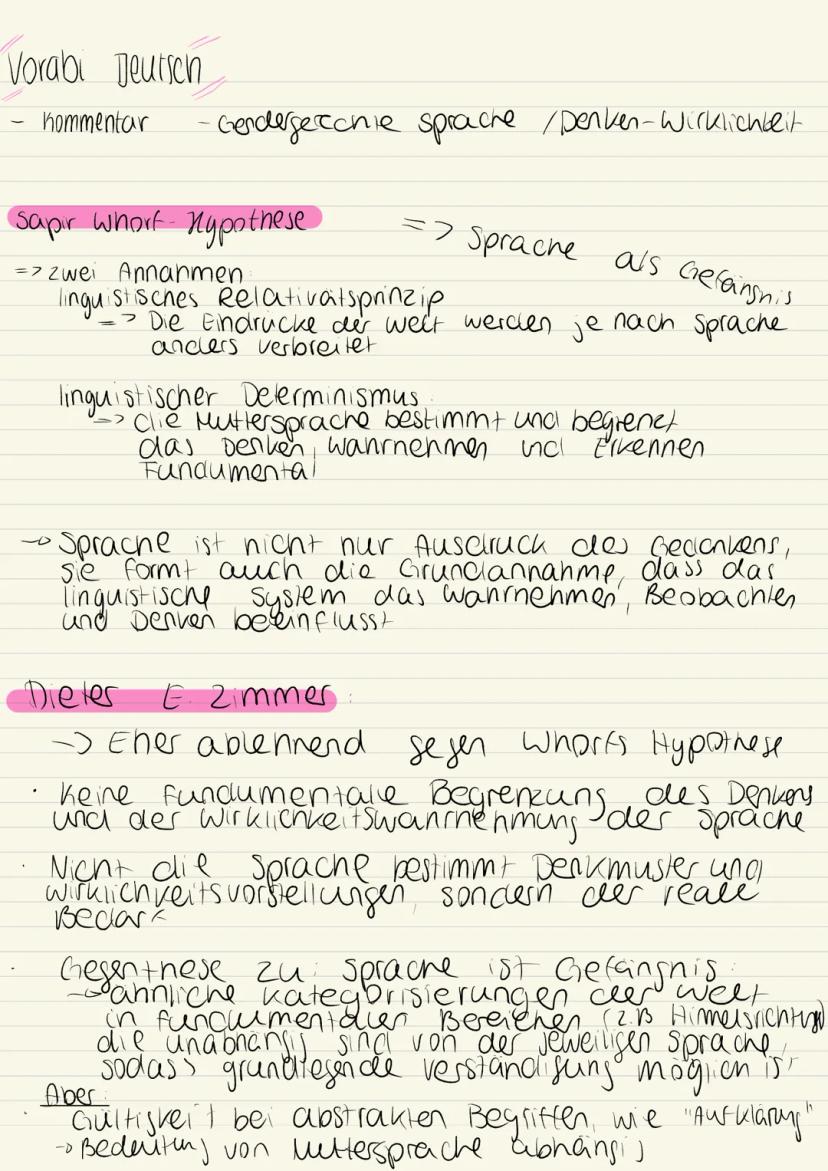 Vorabi Deutsch
- Kommentar - Gendergerechte Sprache / Denken-Wirklichkeit
Sapir Whorf-Hypothese => Sprache als Gefängnis
=> zwei Annahmen:
linguistisches Relativitätsprinzip
=> Die Eindrücke der Welt werden je nach Sprache
anders verbreitet
linguistischer Determinismus:
=> die Muttersprache bestimmt und begrenzt
das Denken, Wahrnehmen und Erkennen
Fundumental
→ Sprache ist nicht nur Ausdruck des Gedankens,
sie formt auch die Grundannahme, dass das
linguistische System das Wahrnehmen, Beobachten
und Denken beeinflusst
Dieter E. Zimmer:
-> Eher ablehnend gegen Whorfs Hypothese
· Keine fundumentale Begrenzung des Denkens
und der Wirklichkeitswahrnehmung der Sprache
· Nicht die Sprache bestimmt Denkmuster und
Wirklichkeitsvorstellungen, sondern der reale
Bedarf
· Gegenthese zu: Sprache ist Gefängnis:
→ ähnliche Kategorisierungen der Welt
in fundumentalen Bereichen (z.B Himmelsrichtung)
die unabhängig sind von der jeweiligen Sprache,
sodass grundlegende Verständigung möglich ist
Aber:
· Gültigkeit bei abstrakten Begriffen, wie "Aufklärung"
→ Bedeutung von Muttersprache abhängig